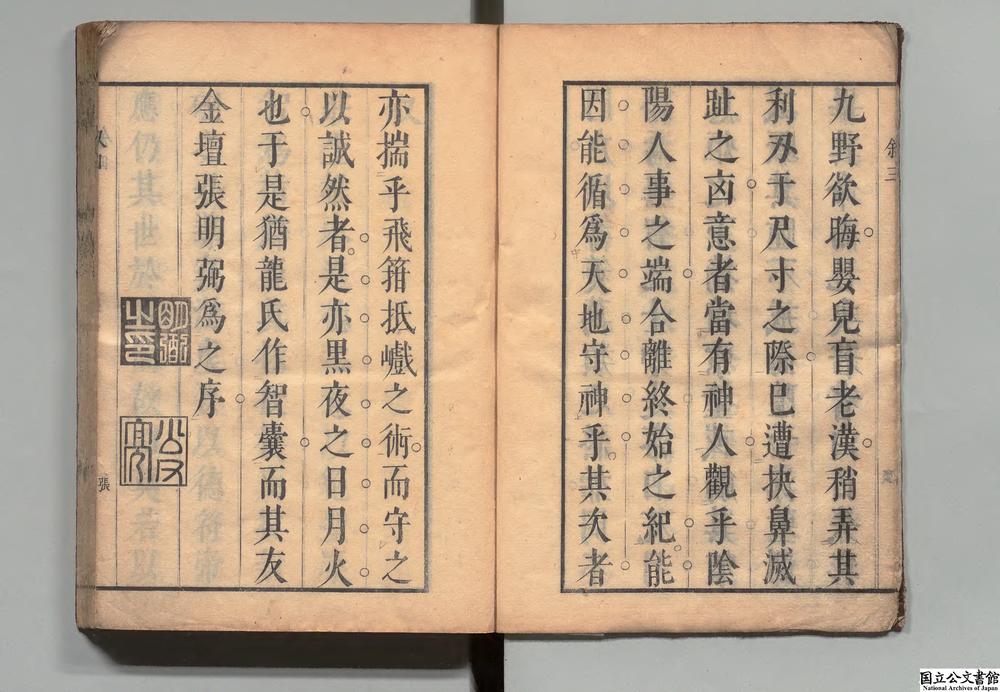 叙三
九野欲晦嬰兒盲老漢稍弄其
利刃于尺寸之際巳遭抉鼻滅
趾之㐫意者當有神人觀乎陰
陽人事之端合離終始之紀能
因能循爲天地守神乎其次者
亦揣乎飛箝抵巇之術而守之
以誠然者是亦黑夜之日月火
也于是猶龍氏作智囊而其友
金壇張明弼爲之序
明弼之印
張
国立公文書館
National Archives of Japan